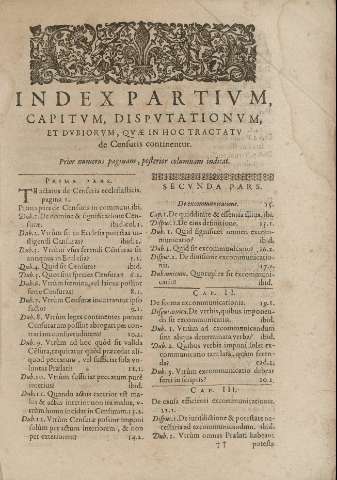 INDEX PARTIVM,
CAPITVM, DISPVTATIONVM,
ET DVBIORVM, QVÆ IN HOC TRACTATV
de Censuris continentur.
Prior numerus paginam, posterior columnam indicat.
PRIMA PARS.
Tractatus de Censuris ecclesiasticis.
pagina 1.
Prima pars de Censuris in communi ibi.
Dub. 1. De nomine & significatione Censuræ. ibid. col. 1.
Dub. 2. Vtrum sit in Ecclesia potestas
ibid.
Dub. 3. Vtrum usus ferendi Censuras sit
antiquus in Ecclesia?
Dub. 4. Quid sit Censura? ibid.
Dub. 5. Quot sint species Censuræ?
Dub. 6. Vtrum
Dub. 7. Vtrum Censuræ incurrantur ipso
facto? 9.1.
Dub. 8. Vtrum leges continentes
Censuram possint abrogari per contrariam
Dub. 9. Vtrum ad hoc quod sit valida
Cēsura, requiratur quòd præcesserit aliquod peccatum
lentas Prælati 11.1.
Dub. 10. Vtrum sufficiat peccatum purè
interius ibid.
Dub. 11. Quando actus exterior est malus & actus interior non ita malus, vtrùm homo incidat in Censuram 13.2.
Dub. 12. Vtrum Censuræ possint imponi
solùm per actum interiorem, & non
per exteriorem 14.2.
SECVNDA PARS.
De excommunicatione. 15.
Cap. 1. De quidditate & essentia eius. ibi.
Disput. 1. De eius definitione. 15.1.
Dub. 1. Quid significet nomen excommunicationis ibid.
Dub. 2. Quid sit excommunicatio? 16.2.
Disput. 2. De diuisione excommunicationis. 17.2.
Dub. vnicum. Quotuplex sit excommunicatio? ibid.
CAP. II.
De forma excommunicationis. 19.1.
Disput. vnica. De verbis, quibus imponenda sit excommunicatio. ibid.
Dub. 1. Vtrum ad excommunicandum
sint aliqua determinata verba? ibid.
Dub. 2. Quibus verbis imponi solet excommunicatio tam lata, quàm ferenda? ead. 2.
Dub. 3. Vtrum excommunicatio debeat
ferri in scriptis? 20.2.
CAP. III.
De causa efficienti excommunicationis.
21.1.
Disput. 1. De iurisdictione & potestate necessaria ad excommunicandum. ibid.
Dub. 1. Vtrum omnes Prælati habeant
†† potesta-